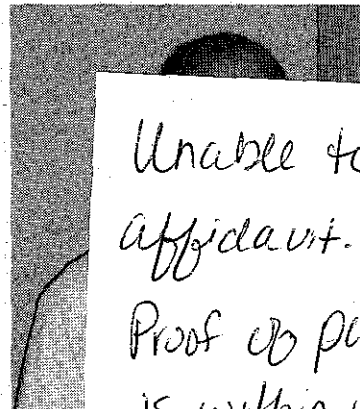 Unable to
affidavit.
Proof of
is within